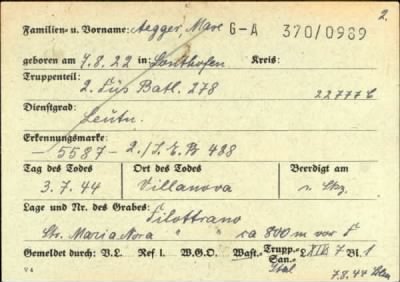 2.
Familien- u. Vorname: Aegger, Max G-A 370/0989
geboren am 7.8.22 in: Sonthofen Kreis:
Truppenteil:
2. Füs Batl. 278 22777 C
Dienstgrad:
Leutn.
Erkennungsmarke:
-5587- 2./I.E.B 488
Tag des Todes Ort des Todes Beerdigt am
3.7.44 Villanova
Lage und Nr. des Grabes: Filottrano
Str. Maria Nora " " ca 800 m vor F
Gemeldet durch: V.L. Ref I. W.G.O. Wast.- Trupp.- San.- L XIII 7 Bl. 1
V 4 7.8.44